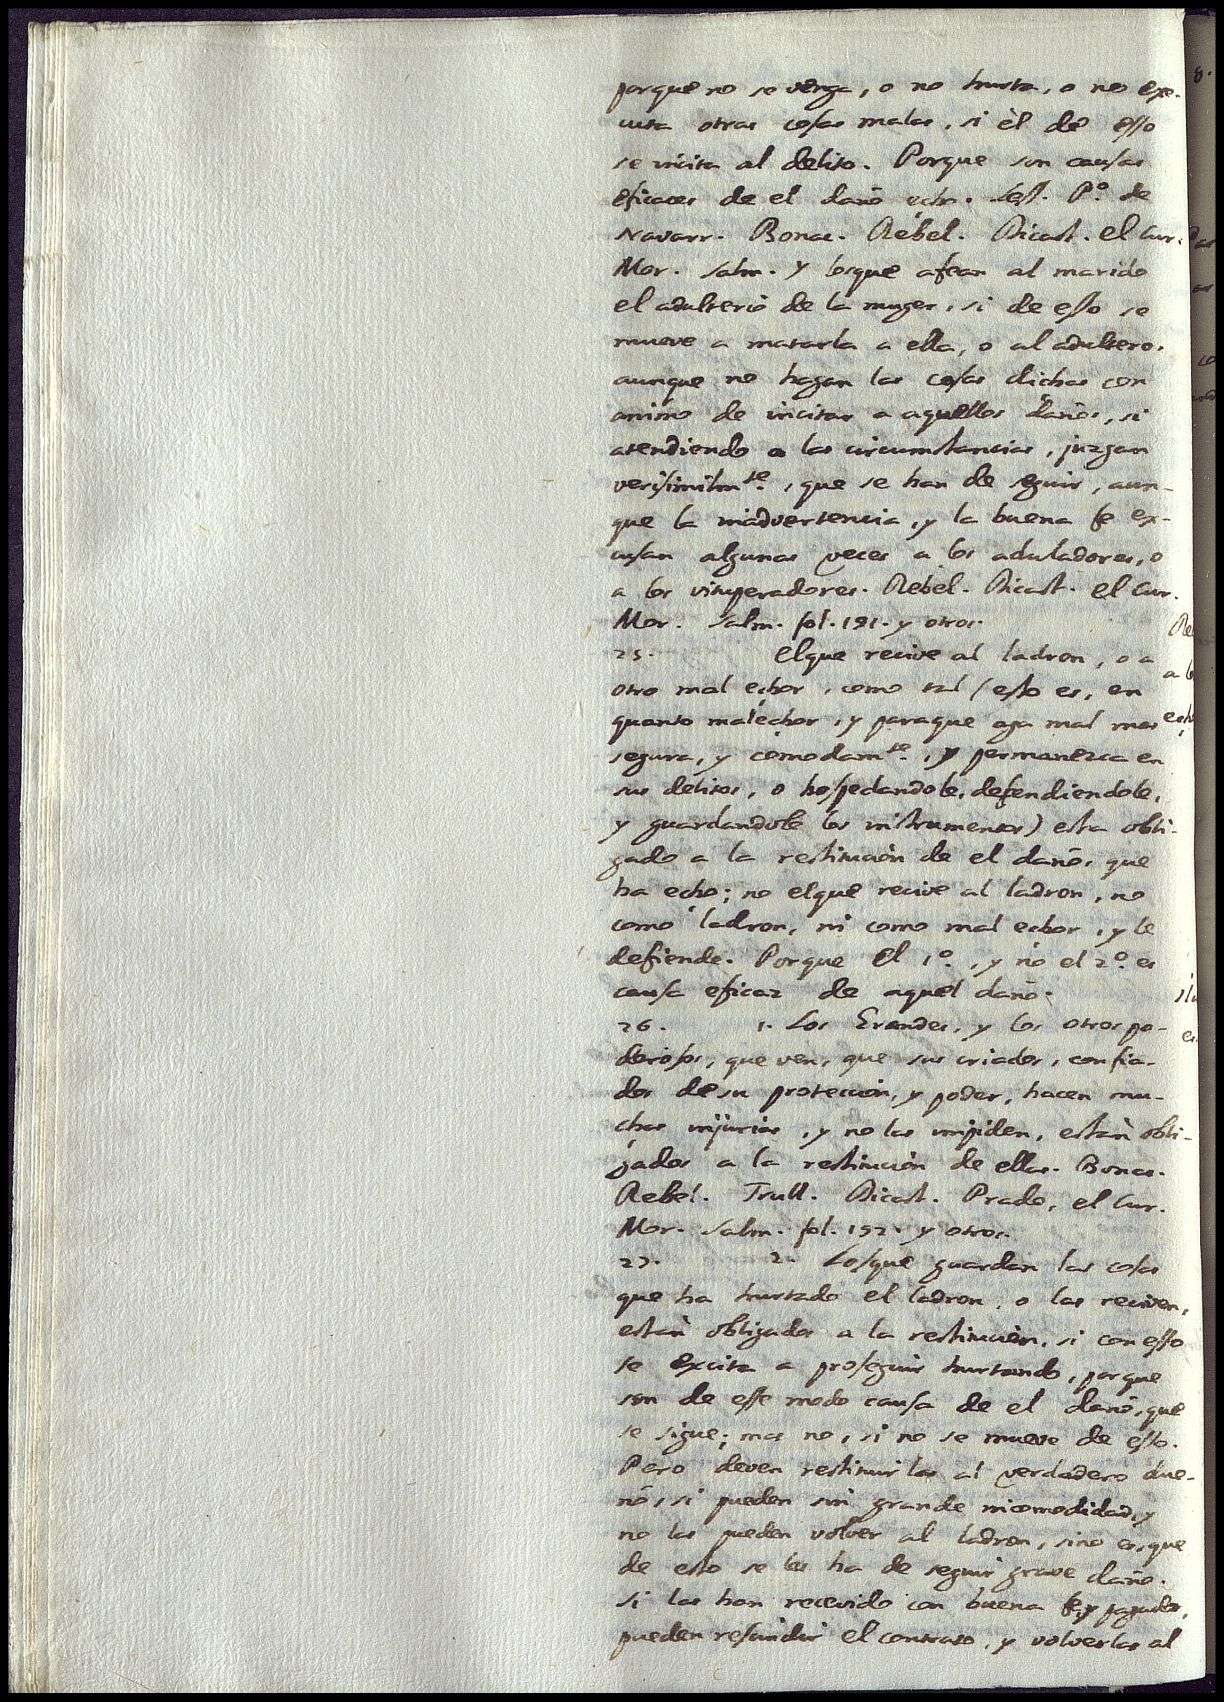 porque no se venga, o no hurta, o no exe-
cuta otras cosas malas, si èl de esso
se incita al delito. Porque son causas
eficaces de el daño echo. Lest. P.º de
Navarr. Bonac. Rebel. Dicast. el Cur.
Mor. Salm. y losque afean al marido
el adulterio de la muger, si de esto se
mueve a matarla a ella, o al adultero.
aunque no hagan las cosas dichas con
animo de incitar a aquellos daños, si
atendiendo a las circumstancias, juzgan
verisimilm.te, que se han de seguir, aun-
que la inadvertencia, y la buena fe ex-
cusan algunas veces a los aduladores, o
a los vituperadores. Rebel. Dicast. el Cur.
Mor. Salm. fol. 191. y otros.
25. Elque recive al ladron, o a
otro mal echor, como tal (esto es, en
quanto malechor, y paraque aga mal mas
segura, y comodam.te, y permanezca en
sus delitos, o hospedandole, defendiendole,
y guardandole los instrumentos) esta obli-
gado a la restitucion de el daño, que
ha echo; no elque recive al ladron, no
como ladron, ni como mal echor, y le
defiende. Porque el 1.º, y no el 2.º es
causa eficaz de aquel daño.
26. 1. Los Grandes, y los otros po-
derosos, que ven, que sus criados, confia-
dos de su proteccion, y poder, hacen mu-
chas injurias, y no las impiden, estàn obli-
gados a la restitucion de ellas. Bonac.
Rebel. Trull. Dicast. Prado, el Cur.
Mor. Salm. fol. 192. y otros.
27. 2. Losque guardan las cosas
que ha hurtado el ladron, o las reciven,
estàn obligados a la restitucion, si con esso
se excita a proseguir hurtando, porque
son de esse modo causa de el daño, que
se sigue; mas no, si no se mueve de esto.
Pero deven restituirlas al verdadero due-
ño, si pueden sin grande incomodidad, y
no las pueden volver al ladron, sino es, que
de esto se les ha de seguir grave daño.
si las han recevido con buena fe, y pagado,
pueden rescindir el contrato, y volverlas al